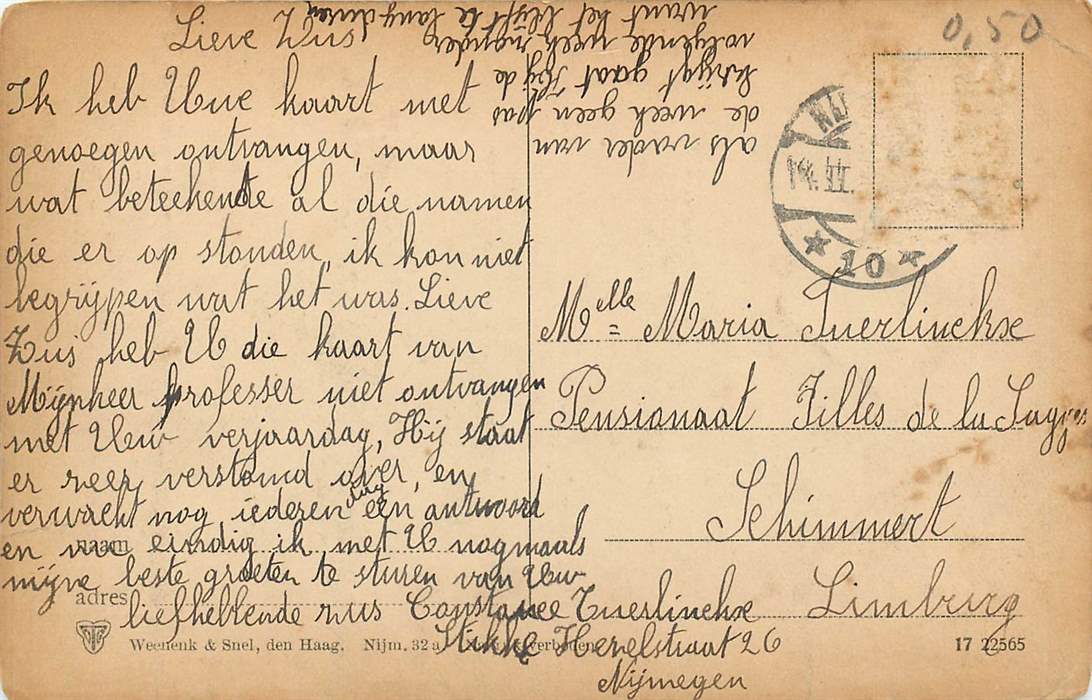 Lieve Zus
Ik heb Uwe kaart met
genoegen ontvangen, maar
wat beteekende al die namen
die er op stonden, ik kon niet
begrijpen wat het was. Lieve
Zus heb U die kaart van
Mijnheer professer niet ontvangen
met Uw verjaardag, Hij staat
er zeer verstomd over, en
verwacht nog iederen dag een antwoord
en nu eindig ik met U nogmaals
mijne beste groeten te sturen van Uw
liefhebbende zus Constance Tuerlinckx
Stikke Hezelstraat 26
Nijmegen
als vader van
de week geen pas
krijgt gaat Hij de
volgende week zonder
want het blijft te lang duren
0,50
14. II.
★ 10 ★
Melle = Maria Tuerlinckx
Pensionaat Filles de la Sagesse
Schimmert
Limburg
naam
adres
Weenenk & Snel, den Haag. Nijm. 32 a verboden
17 22565